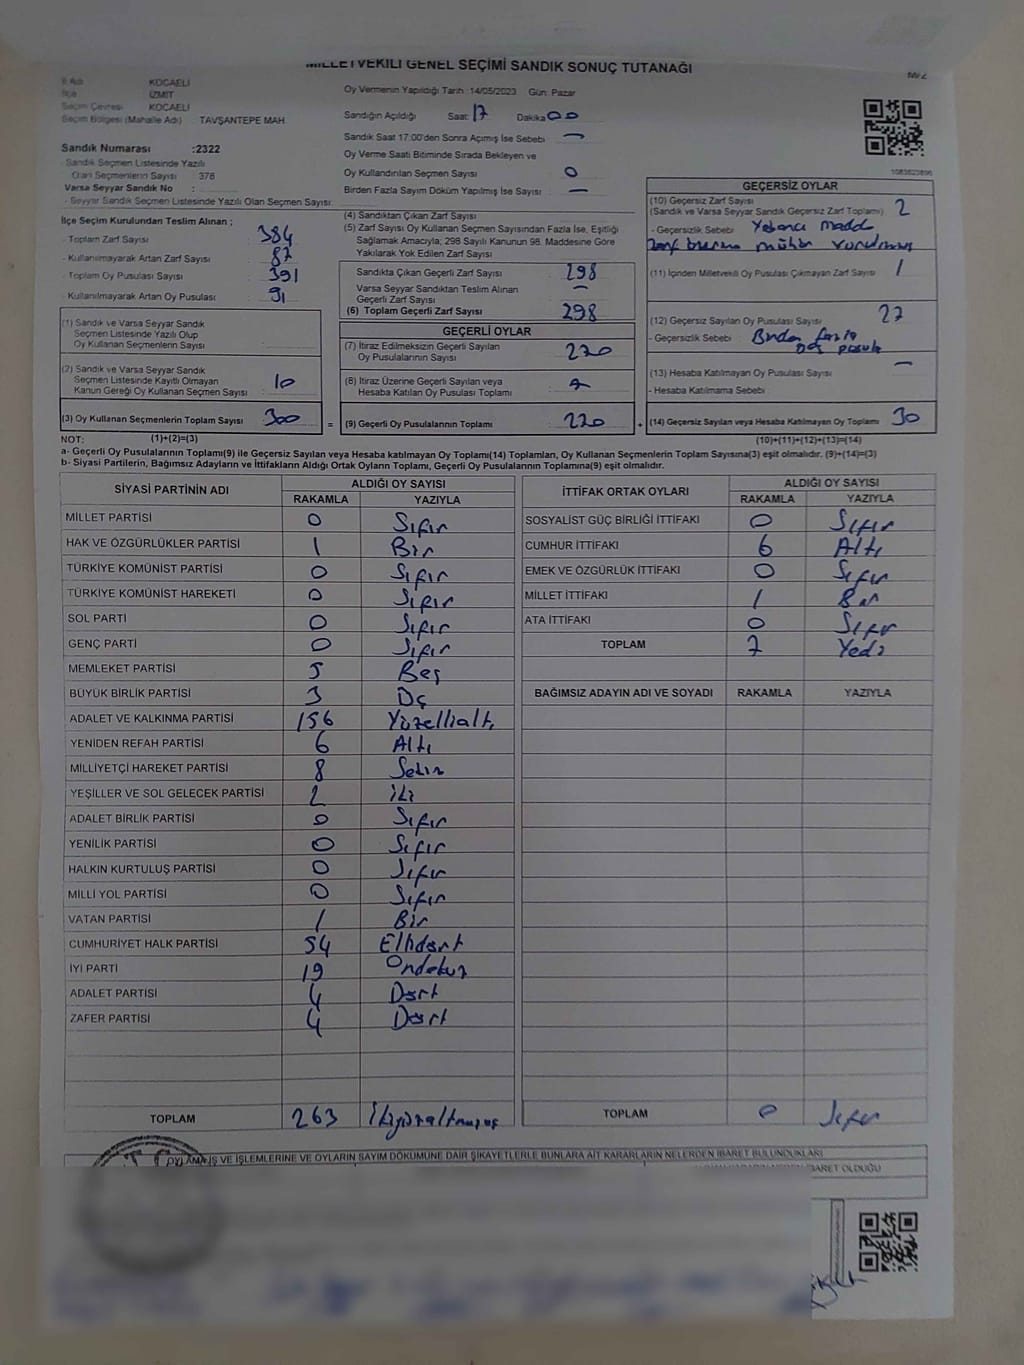 MİLLETVEKİLİ GENEL SEÇİMİ SANDIK SONUÇ TUTANAĞI
İl Adı KOCAELİ
İlçe İZMİT
Seçim Çevresi KOCAELİ
Seçim Bölgesi (Mahalle Adı) TAVŞANTEPE MAH.
Sandık Numarası :2322
- Sandık Seçmen Listesinde Yazılı
Olan Seçmenlerin Sayısı 378
Varsa Seyyar Sandık No :
- Seyyar Sandık Seçmen Listesinde Yazılı Olan Seçmen Sayısı:
Oy Vermenin Yapıldığı Tarih :14/05/2023 Gün: Pazar
Sandığın Açıldığı Saat: 17 Dakika 00
Sandık Saat 17:00'den Sonra Açımış İse Sebebi —
Oy Verme Saati Bitiminde Sırada Bekleyen ve
Oy Kullandırılan Seçmen Sayısı 0
Birden Fazla Sayım Döküm Yapılmış İse Sayısı —
1083623896
İlçe Seçim Kurulundan Teslim Alınan ;
- Toplam Zarf Sayısı 384
- Kullanılmayarak Artan Zarf Sayısı 87
- Toplam Oy Pusulası Sayısı 391
- Kullanılmayarak Artan Oy Pusulası 91
(1) Sandık ve Varsa Seyyar Sandık
Seçmen Listesinde Yazılı Olup
Oy Kullanan Seçmenlerin Sayısı
(2) Sandık ve Varsa Seyyar Sandık
Seçmen Listesinde Kayıtlı Olmayan
Kanun Gereği Oy Kullanan Seçmen Sayısı 10
(3) Oy Kullanan Seçmenlerin Toplam Sayısı 300
(4) Sandıktan Çıkan Zarf Sayısı
(5) Zarf Sayısı Oy Kullanan Seçmen Sayısından Fazla İse, Eşitliği
Sağlamak Amacıyla; 298 Sayılı Kanunun 98. Maddesine Göre
Yakılarak Yok Edilen Zarf Sayısı
Sandıkta Çıkan Geçerli Zarf Sayısı 298
Varsa Seyyar Sandıktan Teslim Alınan
Geçerli Zarf Sayısı —
(6) Toplam Geçerli Zarf Sayısı 298
GEÇERLİ OYLAR
(7) İtiraz Edilmeksizin Geçerli Sayılan
Oy Pusulalarının Sayısı 270
(8) İtiraz Üzerine Geçerli Sayılan veya
Hesaba Katılan Oy Pusulası Toplamı
= (9) Geçerli Oy Pusulalarının Toplamı 270
GEÇERSİZ OYLAR
(10) Geçersiz Zarf Sayısı
(Sandık ve Varsa Seyyar Sandık Geçersiz Zarf Toplamı) 2
- Geçersizlik Sebebi Yabancı madde
mühür vurulmuş
(11) İçinden Milletvekili Oy Pusulası Çıkmayan Zarf Sayısı 1
(12) Geçersiz Sayılan Oy Pusulası Sayısı 27
- Geçersizlik Sebebi Birden fazla
pusula
(13) Hesaba Katılmayan Oy Pusulası Sayısı —
- Hesaba Katılmama Sebebi
+ (14) Geçersiz Sayılan veya Hesaba Katılmayan Oy Toplamı 30
NOT: (1)+(2)=(3)
(10)+(11)+(12)+(13)=(14)
a- Geçerli Oy Pusulalarının Toplamı(9) ile Geçersiz Sayılan veya Hesaba katılmayan Oy Toplamı(14) Toplamları, Oy Kullanan Seçmenlerin Toplam Sayısına(3) eşit olmalıdır. (9)+(14)=(3)
b- Siyasi Partilerin, Bağımsız Adayların ve İttifakların Aldığı Ortak Oyların Toplamı, Geçerli Oy Pusulalarının Toplamına(9) eşit olmalıdır.
SİYASİ PARTİNİN ADI ALDIĞI OY SAYISI
RAKAMLA YAZIYLA
MİLLET PARTİSİ 0 Sıfır
HAK VE ÖZGÜRLÜKLER PARTİSİ 1 Bir
TÜRKİYE KOMÜNİST PARTİSİ 0 Sıfır
TÜRKİYE KOMÜNİST HAREKETİ 0 Sıfır
SOL PARTİ 0 Sıfır
GENÇ PARTİ 0 Sıfır
MEMLEKET PARTİSİ 5 Beş
BÜYÜK BİRLİK PARTİSİ 3 Üç
ADALET VE KALKINMA PARTİSİ 156 Yüzellialtı
YENİDEN REFAH PARTİSİ 6 Altı
MİLLİYETÇİ HAREKET PARTİSİ 8 Sekiz
YEŞİLLER VE SOL GELECEK PARTİSİ 2 İki
ADALET BİRLİK PARTİSİ 0 Sıfır
YENİLİK PARTİSİ 0 Sıfır
HALKIN KURTULUŞ PARTİSİ 0 Sıfır
MİLLİ YOL PARTİSİ 0 Sıfır
VATAN PARTİSİ 1 Bir
CUMHURİYET HALK PARTİSİ 54 Ellidört
İYİ PARTİ 19 Ondokuz
ADALET PARTİSİ 4 Dört
ZAFER PARTİSİ 4 Dört
TOPLAM 263
İTTİFAK ORTAK OYLARI ALDIĞI OY SAYISI
RAKAMLA YAZIYLA
SOSYALİST GÜÇ BİRLİĞİ İTTİFAKI 0 Sıfır
CUMHUR İTTİFAKI 6 Altı
EMEK VE ÖZGÜRLÜK İTTİFAKI 0 Sıfır
MİLLET İTTİFAKI 1 Bir
ATA İTTİFAKI 0 Sıfır
TOPLAM 7 Yedi
BAĞIMSIZ ADAYIN ADI VE SOYADI RAKAMLA YAZIYLA
TOPLAM 0 Sıfır
OYLAMA İŞ VE İŞLEMLERİNE VE OYLARIN SAYIM DÖKÜMÜNE DAİR ŞİKAYETLERLE BUNLARA AİT KARARLARIN NELERDEN İBARET BULUNDUKLARI